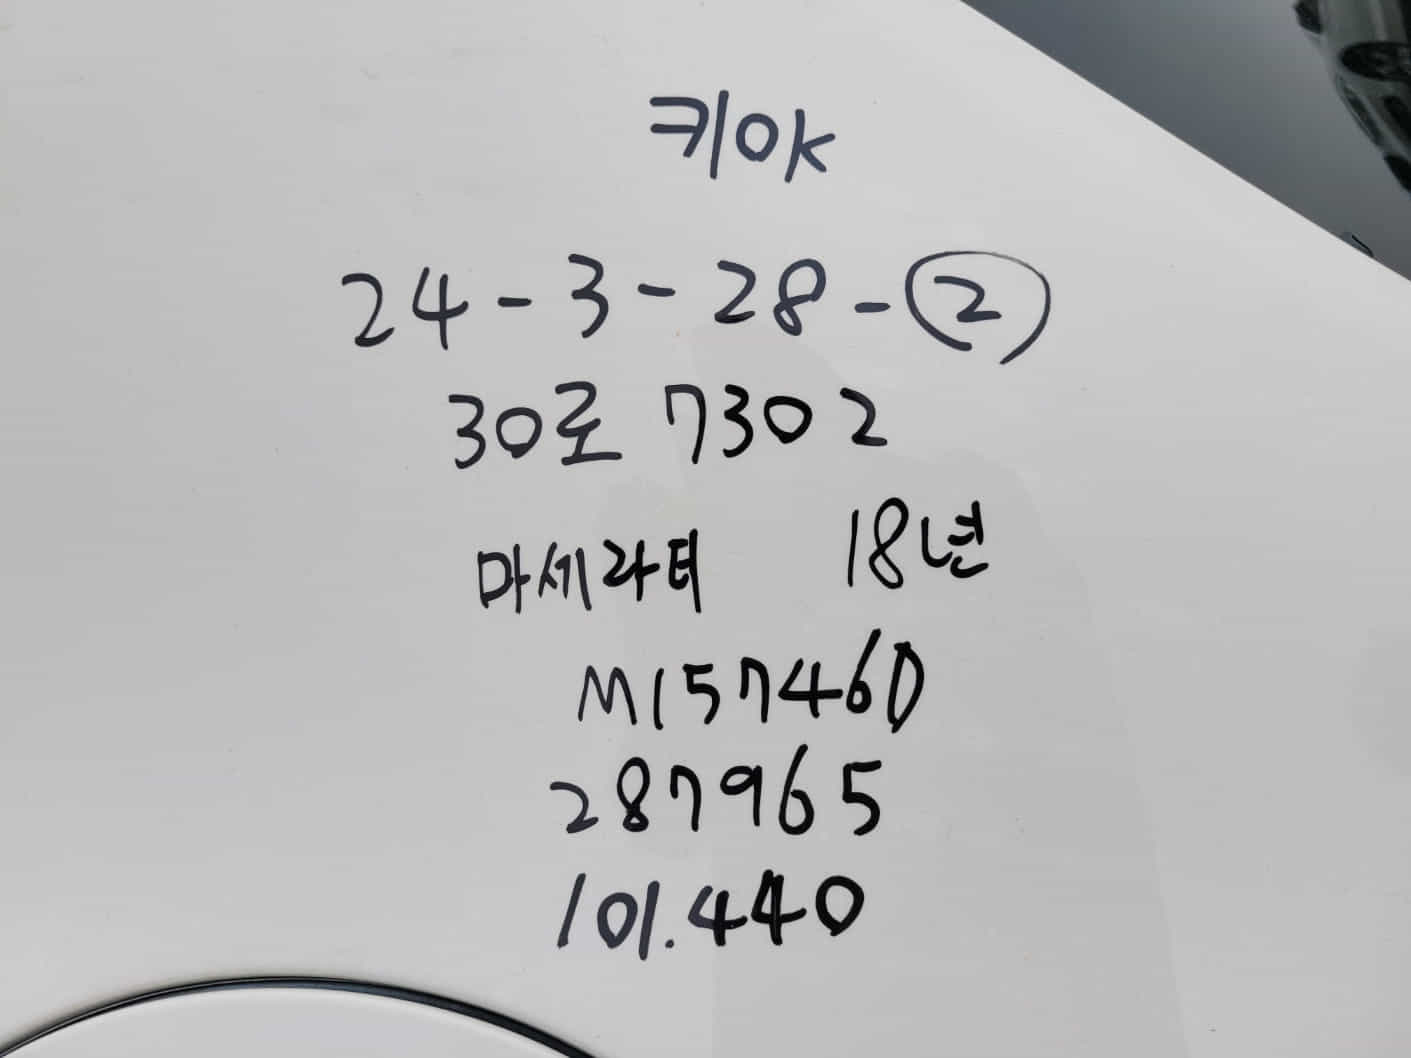 키OK
24-3-28-②
30로 7302
마세라티 18년
M157460
287965
101.440